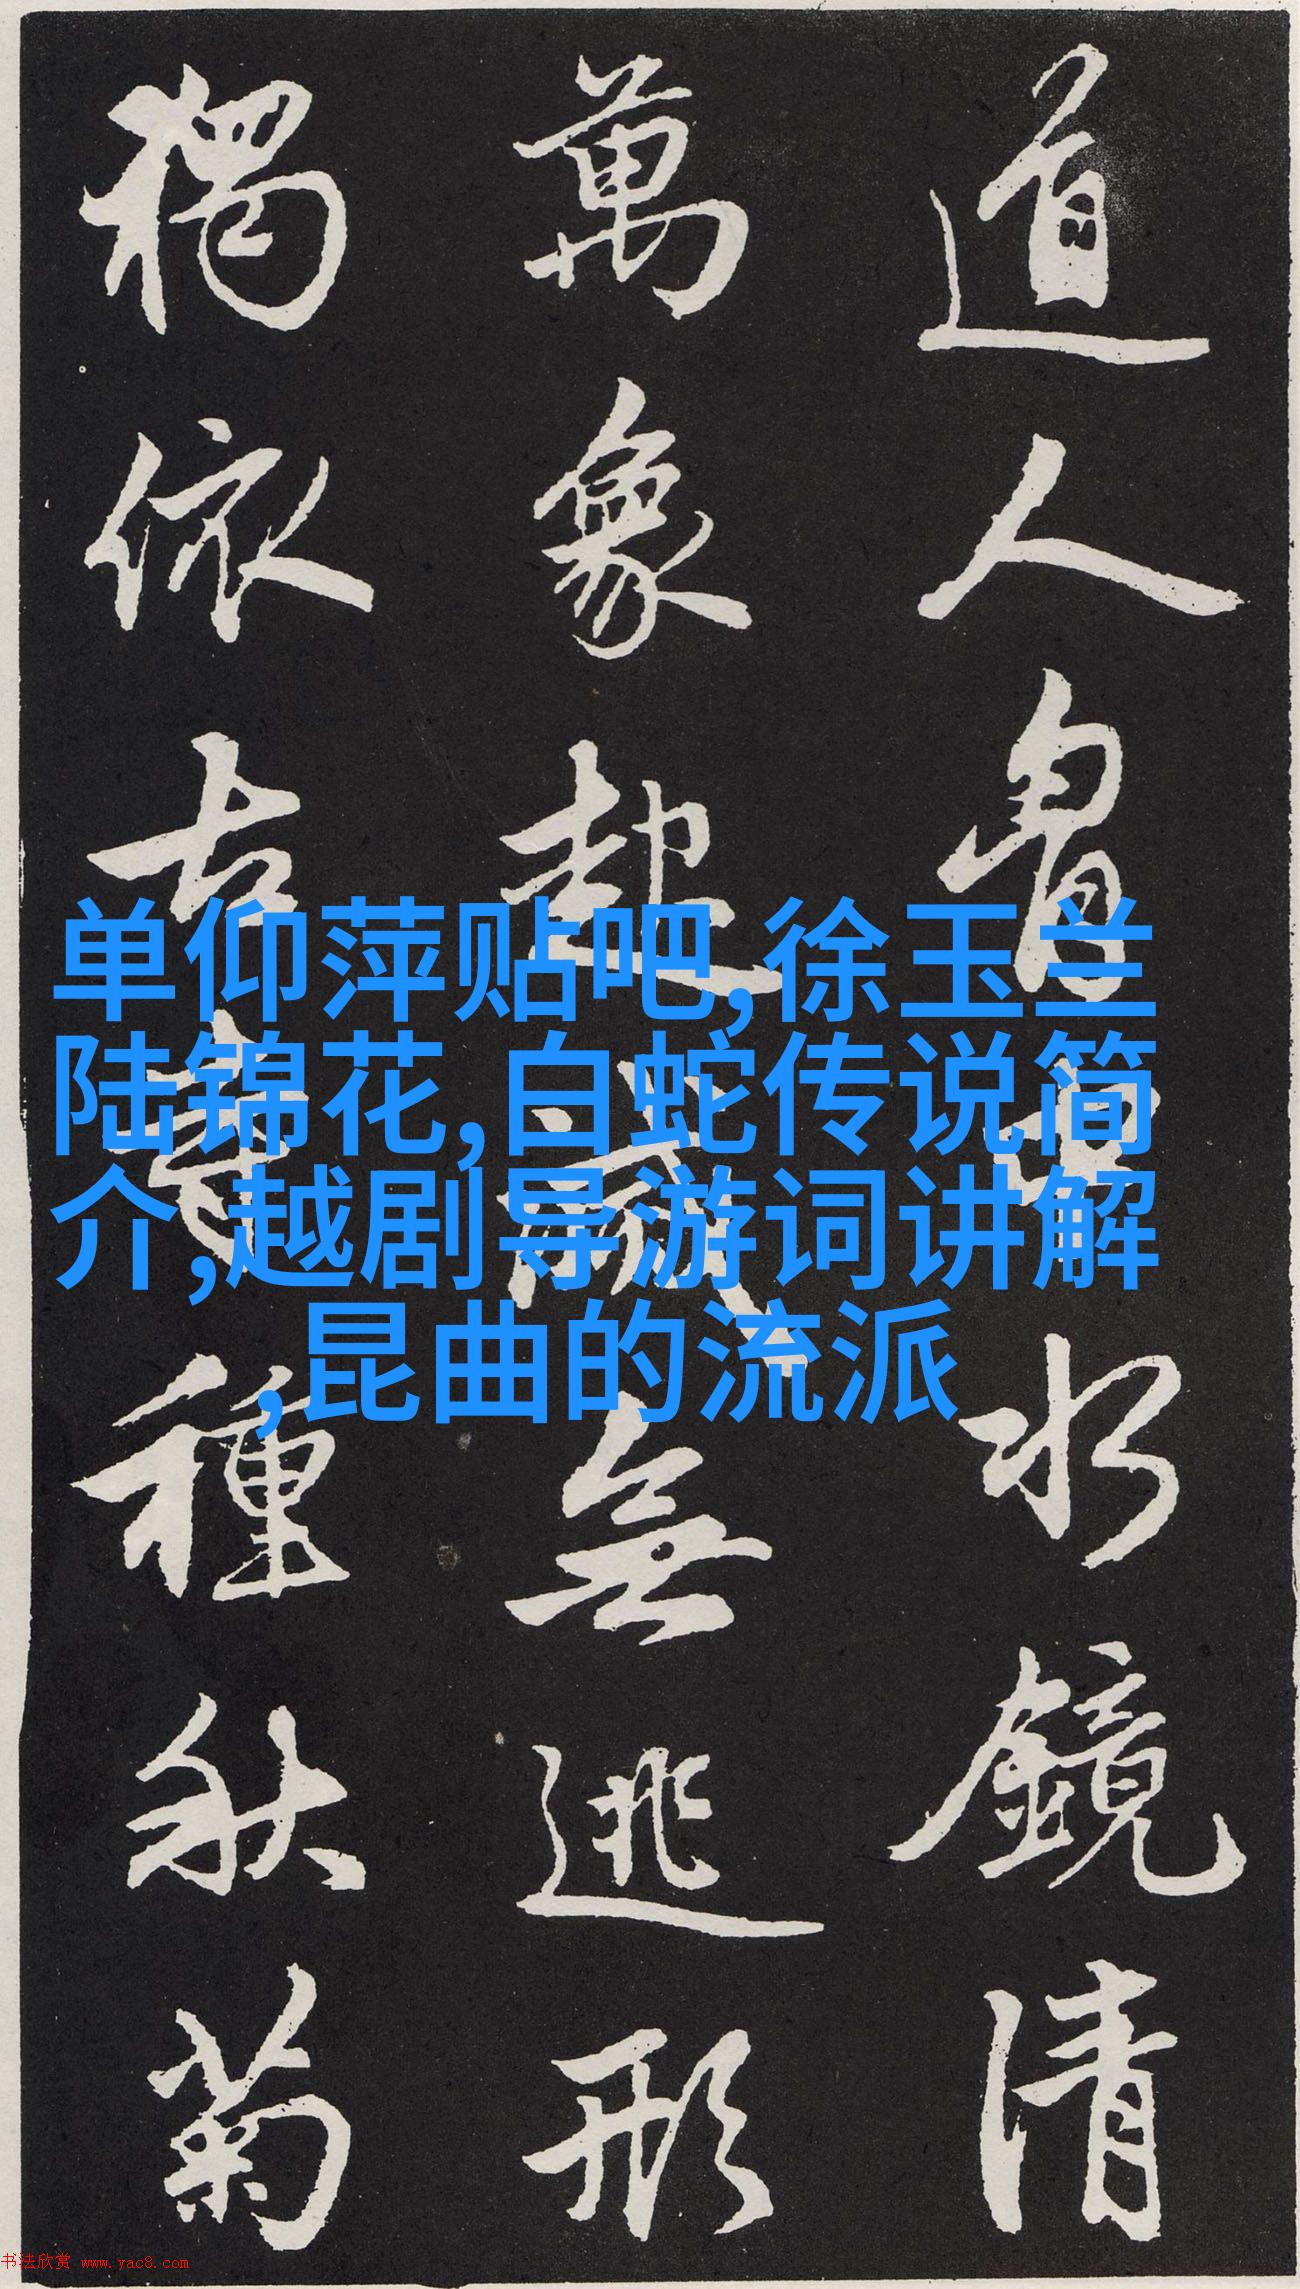 道人胸中水鏡清
萬象起滅無逃形
獨依古寺種秋菊
单仰萍贴吧,徐玉兰
陆锦花,白蛇传说简
介,越剧导游词讲解
,昆曲的流派
书法欣赏 www.yac8.com